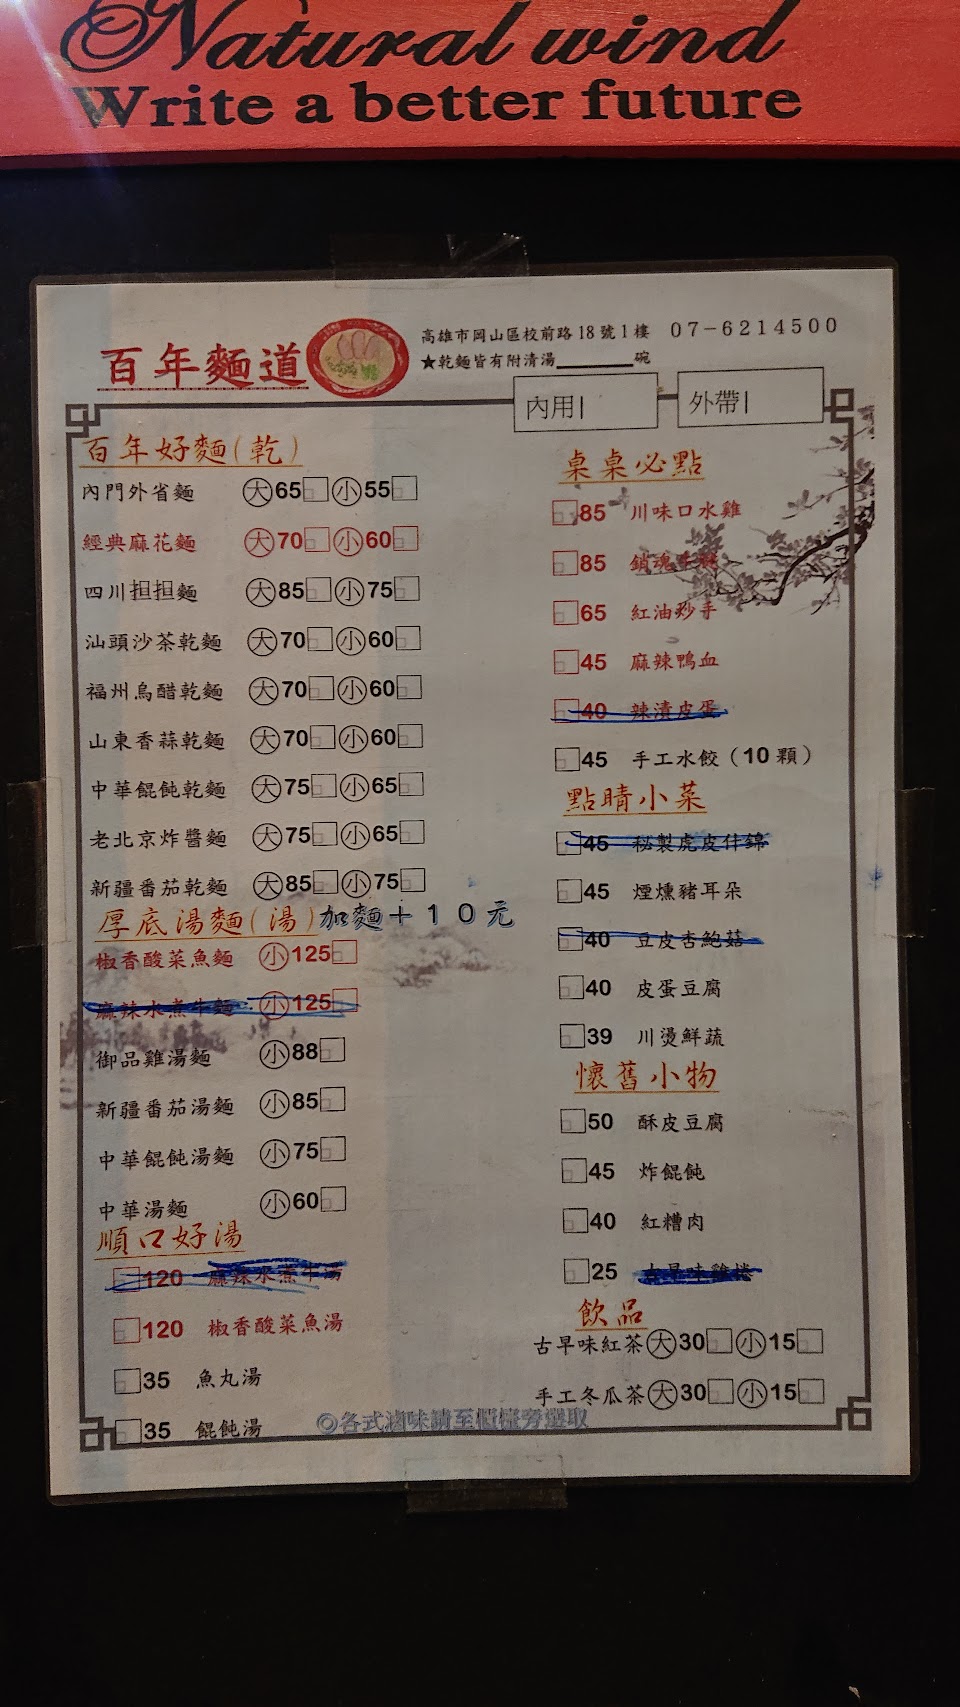 Natural wind
Write a better future
百年麵道
高雄市岡山區校前路18號1樓 07-6214500
★乾麵皆有附清湯______碗
內用 外帶
百年好麵(乾)
內門外省麵 大65 小55
經典麻花麵 大70 小60
四川担担麵 大85 小75
汕頭沙茶乾麵 大70 小60
福州烏醋乾麵 大70 小60
山東香蒜乾麵 大70 小60
中華餛飩乾麵 大75 小65
老北京炸醬麵 大75 小65
新疆番茄乾麵 大85 小75
厚底湯麵(湯)加麵+10元
椒香酸菜魚麵 小125
麻辣水煮牛麵 小125
御品雞湯麵 小88
新疆番茄湯麵 小85
中華餛飩湯麵 小75
中華湯麵 小60
順口好湯
120 麻辣水煮牛湯
120 椒香酸菜魚湯
35 魚丸湯
35 餛飩湯
桌桌必點
85 川味口水雞
85 銷魂
65 紅油炒手
45 麻辣鴨血
40 辣漬皮蛋
45 手工水餃(10顆)
點睛小菜
45 秘製虎皮什錦
45 煙燻豬耳朵
40 豆皮杏鮑菇
40 皮蛋豆腐
39 川燙鮮蔬
懷舊小物
50 酥皮豆腐
45 炸餛飩
40 紅糟肉
25 古早味雞捲
飲品
古早味紅茶 大30 小15
手工冬瓜茶 大30 小15
◎各式滷味請至櫃檯旁選取